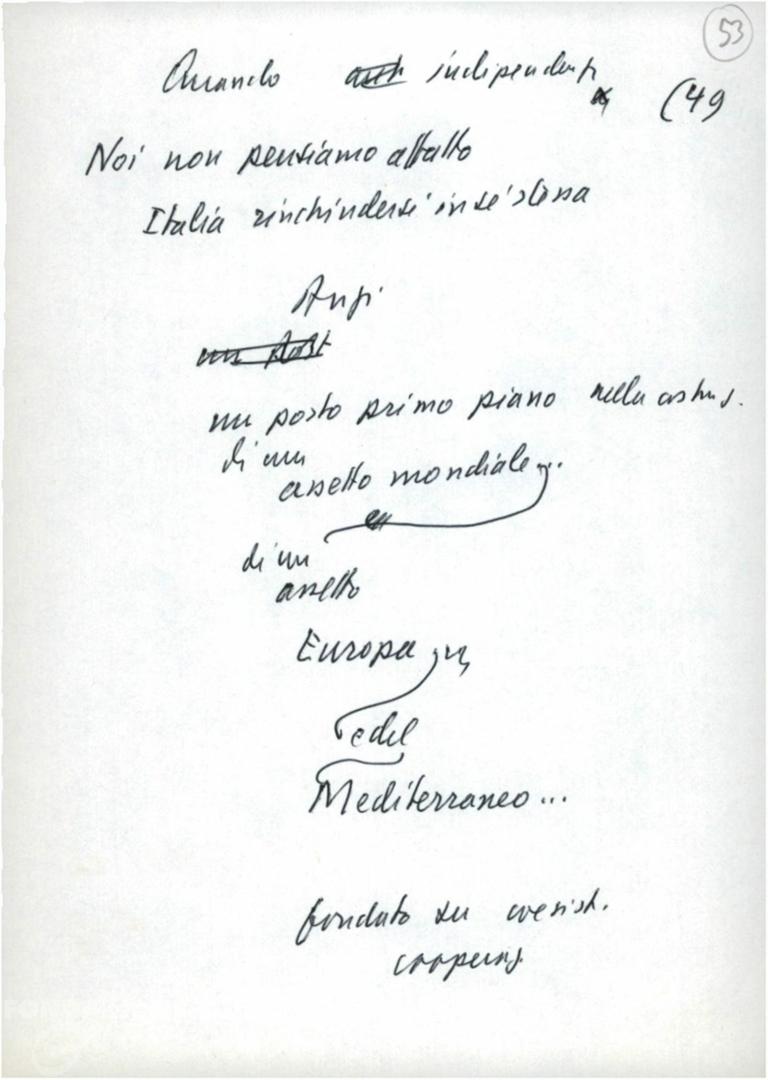 53
Quando indipendenti
(49
Noi non pensiamo affatto
Italia rinchiudersi in sé stessa
Anzi
un posto
un posto primo piano nella costruz.
di un
assetto mondiale...
di un
assetto
Europa
e del
Mediterraneo...
fondato su coesist.
cooperaz.